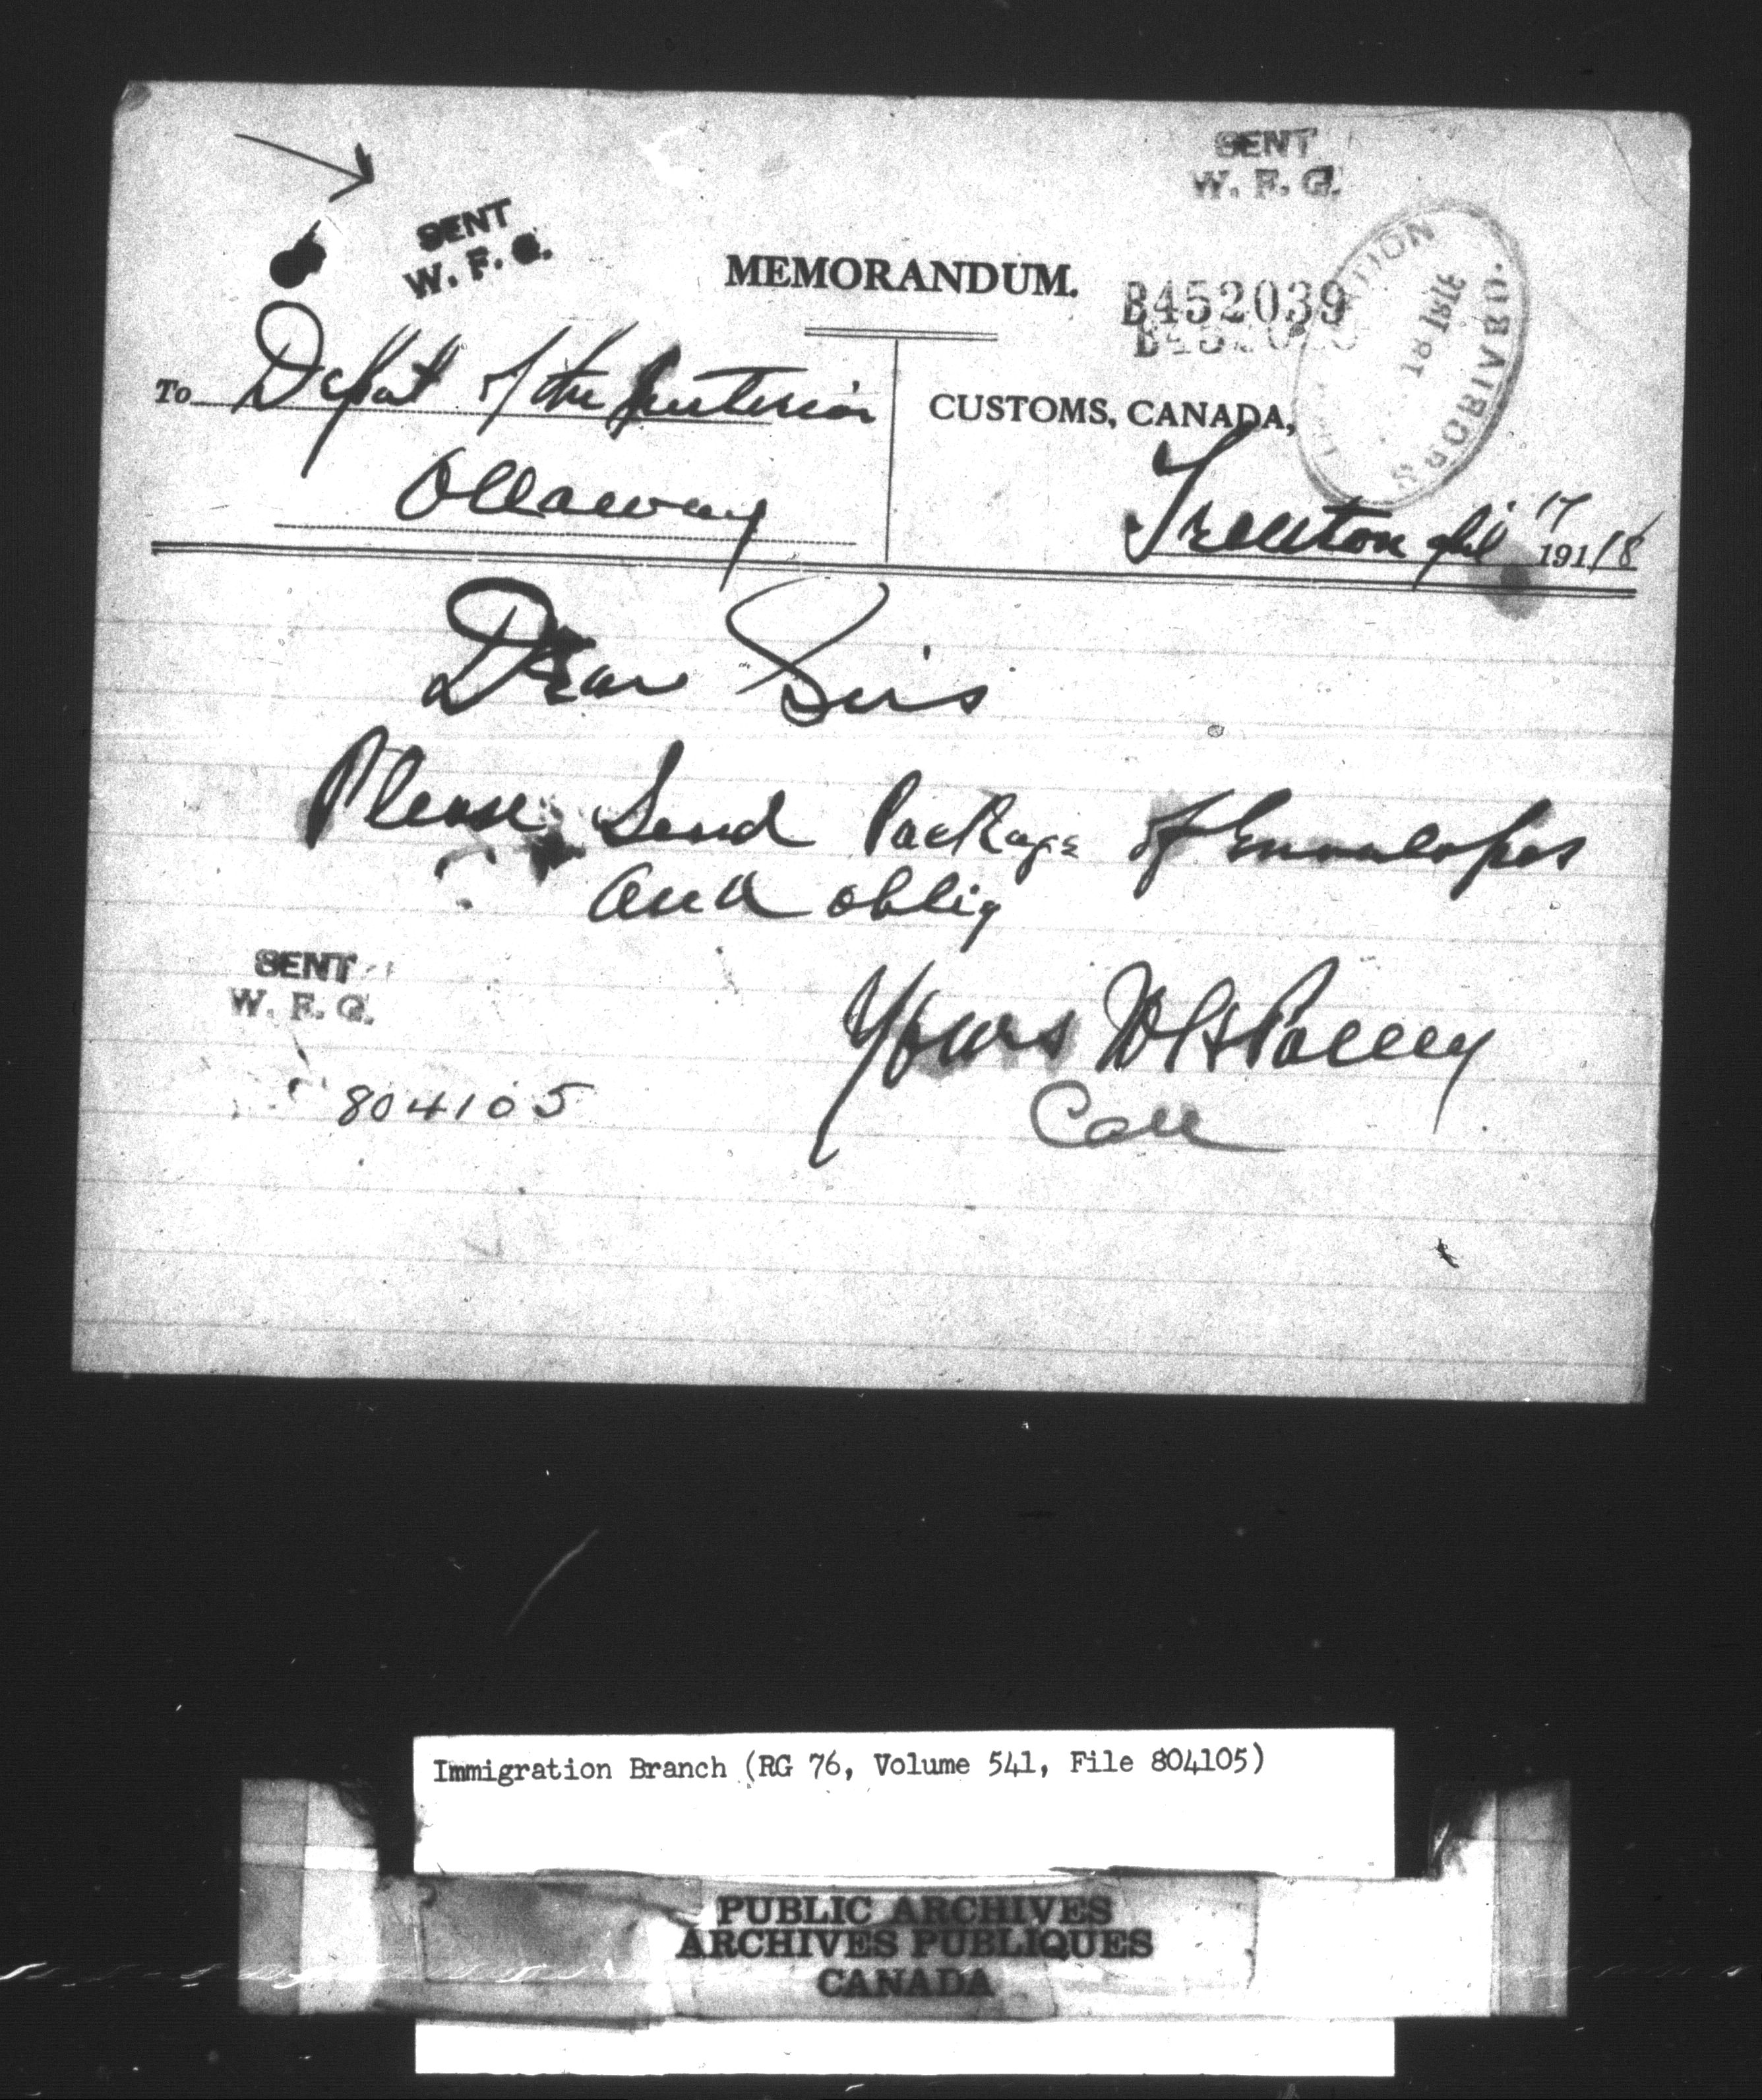 SENT
W. F. G.
SENT
W. F. G.
MEMORANDUM.
B452039
To Depart of the Interior
CUSTOMS, CANADA,
Ottaway
Trenton 17 1918
Dear Sirs
Please Send Package of Envelopes
and oblig
SENT
W. F. G.
Yours
Coll
804105
Immigration Branch (RG 76, Volume 541, File 804105)
PUBLIC ARCHIVES
ARCHIVES PUBLIQUES
CANADA